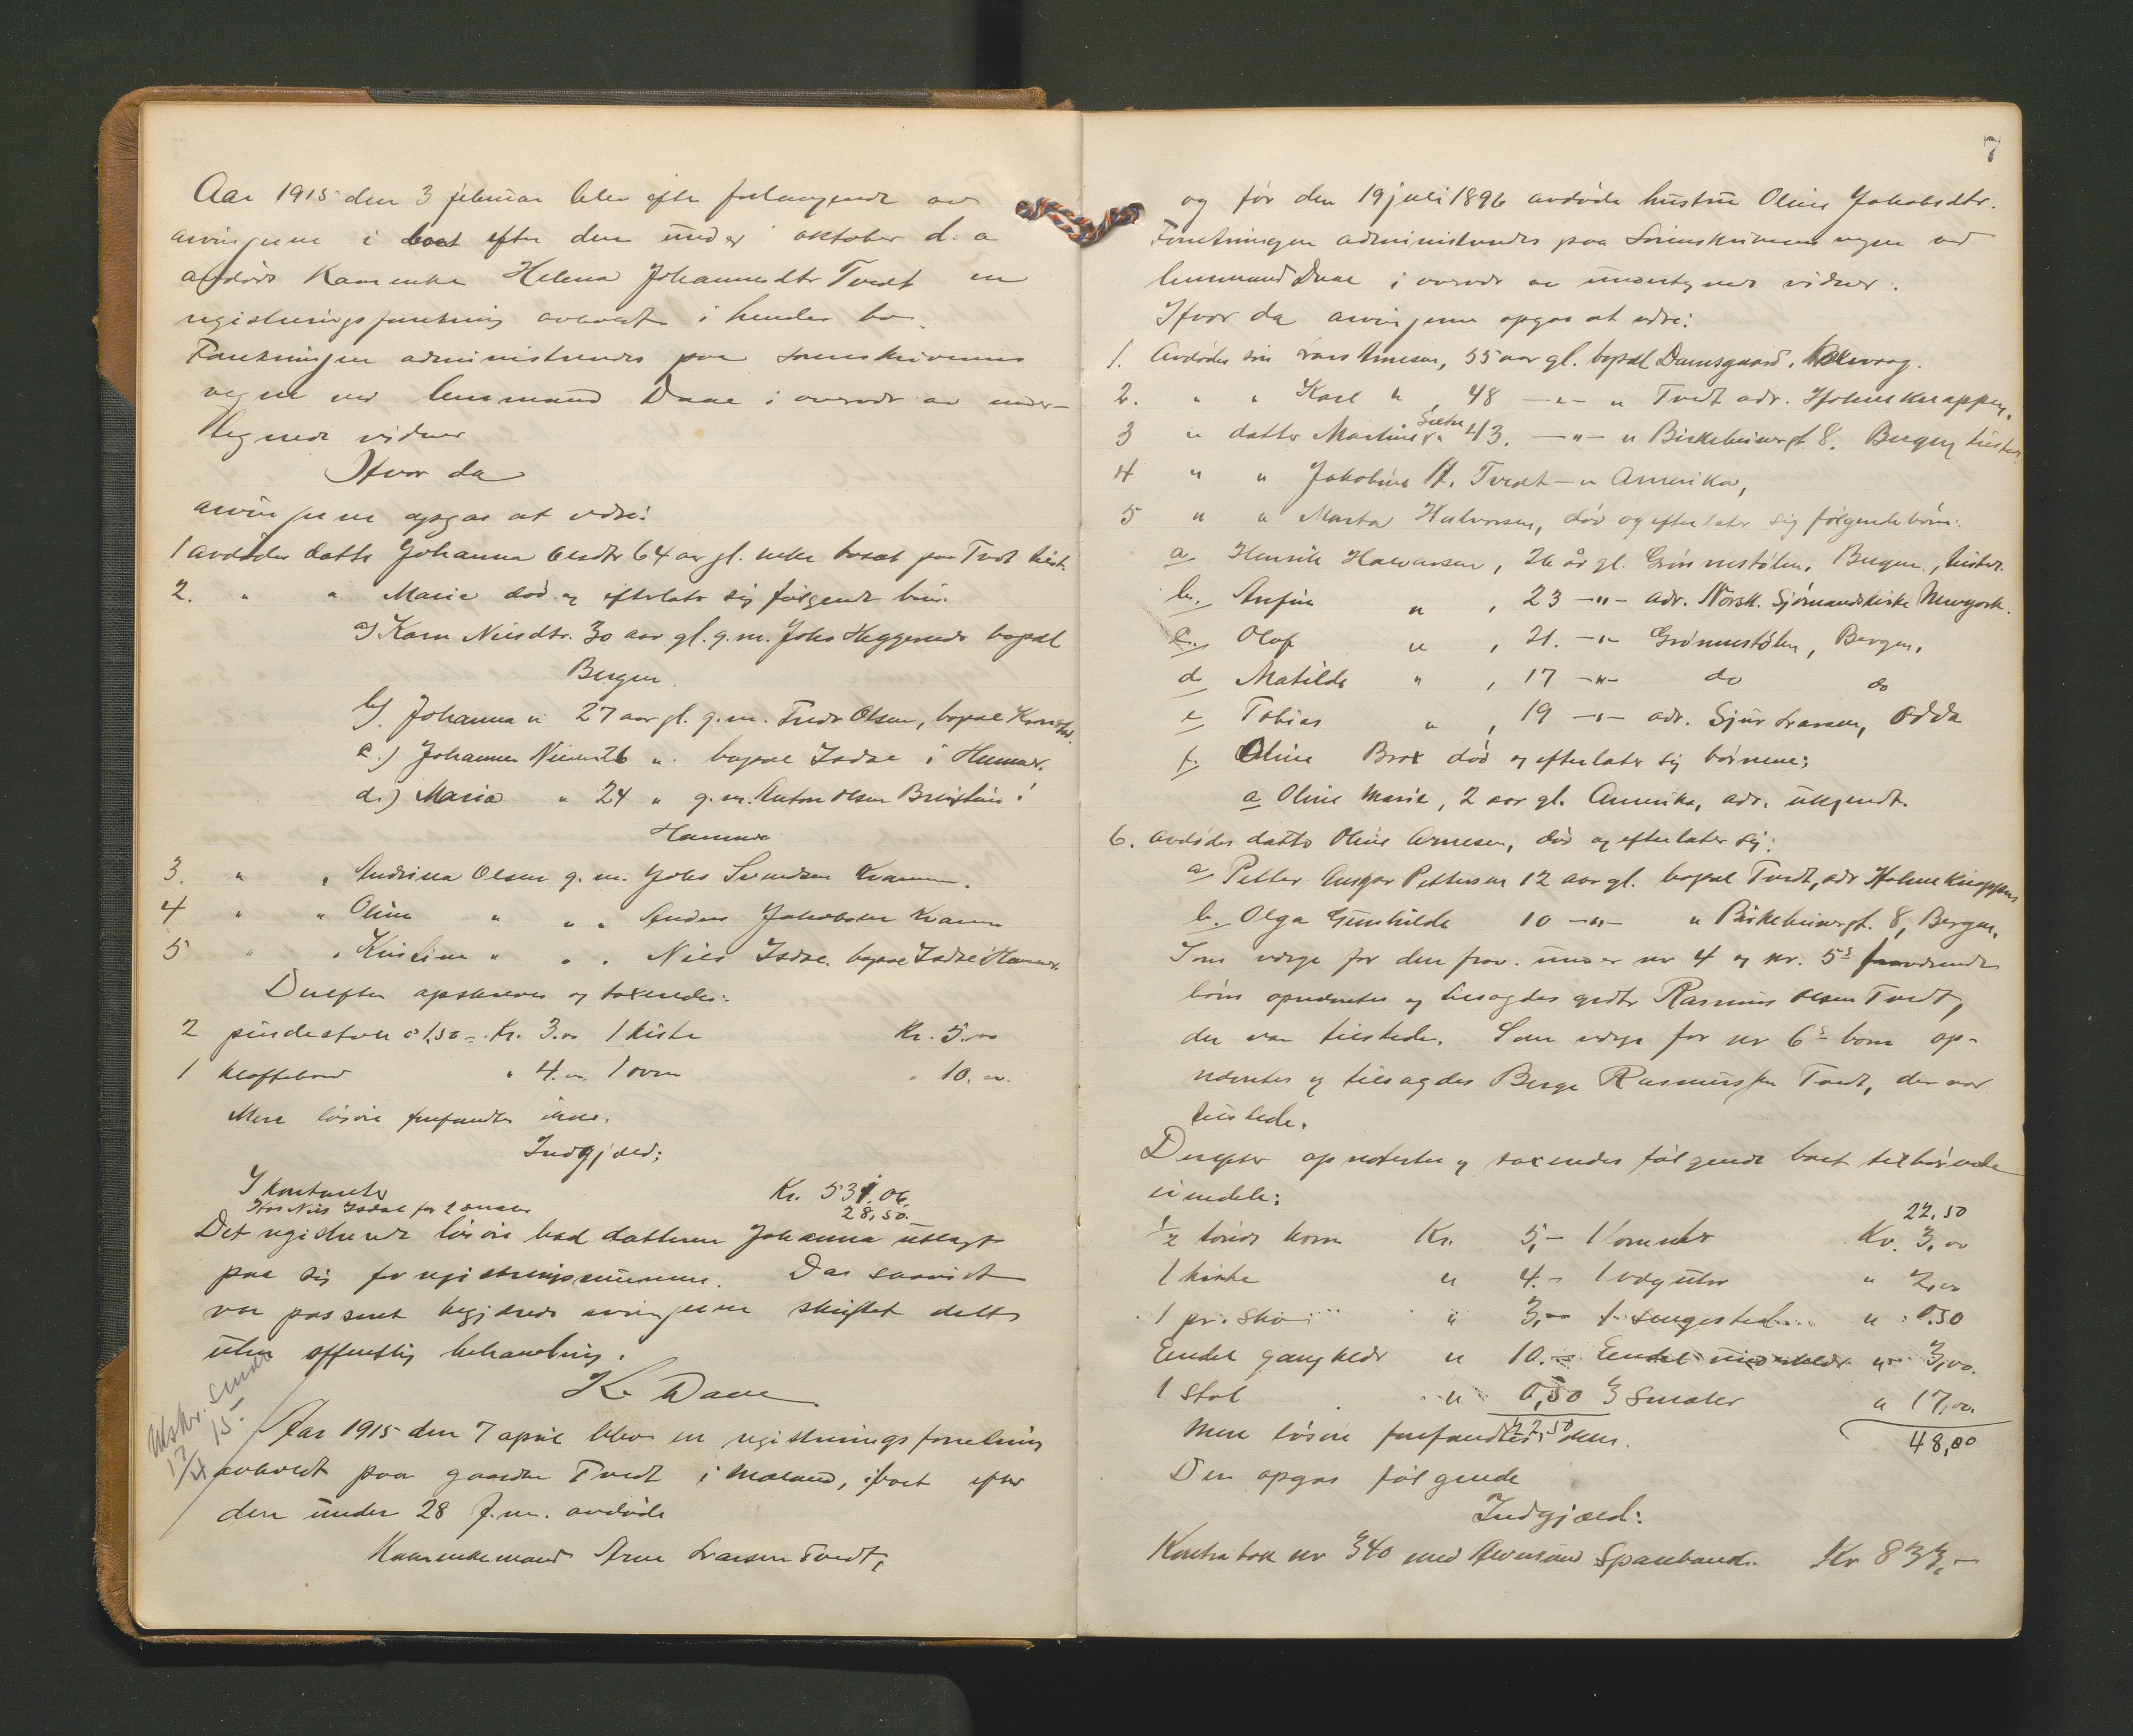 Aar 1915 den 3 februar blev efter forlangende av
arvingene i boet efter den under oktober d. a
afdøde Kaarenke Helena Johannesdtr Tvedt en
registreringsforretning avholdt i hendes bo.
Forretningen administreredes paa sorenskriverens
vegne ved lensmand Daae i overvær av under-
tegnede vidner
Hvor da
arvingene opgas at være:
1 avdødes datter Johanna Olsdtr 64 aar gl. enke bosat paa Tvedt tilst.
2. " " Marie død og efterlater sig følgende børn.
a) Karen Nilsdtr. 30 aar gl. g. m. Johs Heggernes bopæl
Bergen.
b). Johanna " 27 aar gl. g. m. Fredr Olsen, bopæl
c.) Johannes Nilsen 26 " bopæl Isdal i Hammer.
d.) Maria " 24 " g. m. Anton Olsen Breistein i
Hammer
3. " " Andrina Olsen g. m. Johs Svendsen Kvamme.
4 " " Oline " " " Anders Jakobsen Kvamme
5 " " Kristine " " " Nils Isdal. bopæl Isdal i Hammer.
Derefter opskreves og taxeredes:
2 pindestole á 1,50 - Kr. 3.00 1 kiste Kr. 5.00
1 klaffebord " 4.00 1 ovn " 10.00.
Mere løsøre forefandtes ikke.
Indgjæld:
I kontanter Kr. 531.06
Hos Nils Isdal for 2 smaler 28,50.
Det registrerede løsøre bad datteren Johanna utlagt
paa sig for registreringssummen. Da saavidt
var passeret begjærede arvingene skiftet delt
uten offentlig behandling.
K. Daae
Utskr. sendt
17/4 15
Aar 1915 den 7 april blev en registreringsforretning
avholdt paa gaarden Tvedt i Mæland, i boet efter
den under 28 f. m. avdøde
Kaarenkemand Arne Larsen Tvedt,
7
og før den 19 juli 1896 avdøde hustru Oline Jakobsdtr.
Forretningen administreredes paa Sorenskriverens vegne ved
lensmand Daae i overvær av undertegnede vidner.
Hvor da arvingene opgas at være:
1. Avdødes søn Lars Arnesen, 55 aar gl. bopæl Damsgaard, Laksevaag.
2. " " Karl " , 48 -"- " Tvedt adr. Hjelmeknappen.
3 " datter Martine Sætre " 43. -"- " Birkebeinergt. 8. Bergen tilstede.
4 " " Jakobine A. Tvedt - " Amerika,
5 " " Marta Halvorsen, død og efterlater sig følgende børn:
a Henrik Halvorsen, 26 år gl. Grønnestølen, Bergen, tilstede.
b. Anfin " , 23 -"- adr. Norsk. Sjømandskirke Newyork.
c. Olaf " , 21. -"- Grønnestølen, Bergen.
d Matilde " , 17 -"- do do
e Tobias " , 19 -"- adr. Sjur Larsen, Odda
f. Oline Brox død og efterlater sig børnene:
a Oline Marie, 2 aar gl. Amerika, adr. ukjendt.
6. avdødes datter Oline Arnesen, død og efterlater sig:
a Petter Ansgar Pettersen 12 aar gl. bopæl Tvedt, adr Hjelmeknappen
b. Olga Gunhilde 10 -"- " Birkebeinergt. 8, Bergen.
Som verge for den frav. under nr 4 og nr. 5s fraværende
børn opnævntes og tilsagdes grdbr Rasmus Olsen Tvedt,
der var tilstede. Som verge for nr 6s barn op-
nævntes og tilsagdes Berge Rasmussen Tvedt, der var
tilstede.
Derefter opnotertes og taxeredes følgende boet tilhørende
eiendele:
22,50
1/2 tønde korn Kr. 5,- 1 Kr. 3,00
1 kiste " 4.- 1 vægur " 2,00
1 pr. sko " 3,00 1 sengested " 0.50
Endel gangklær " 10.- Endel underklær " 3,00.
1 stol " 0,50 3 smaler " 17,00.
22,50 48,00
Mere løsøre forefandtes ikke.
Der opgas følgende
Indgjæld:
Kontrabok nr 340 med Sparebank. Kr 833,-